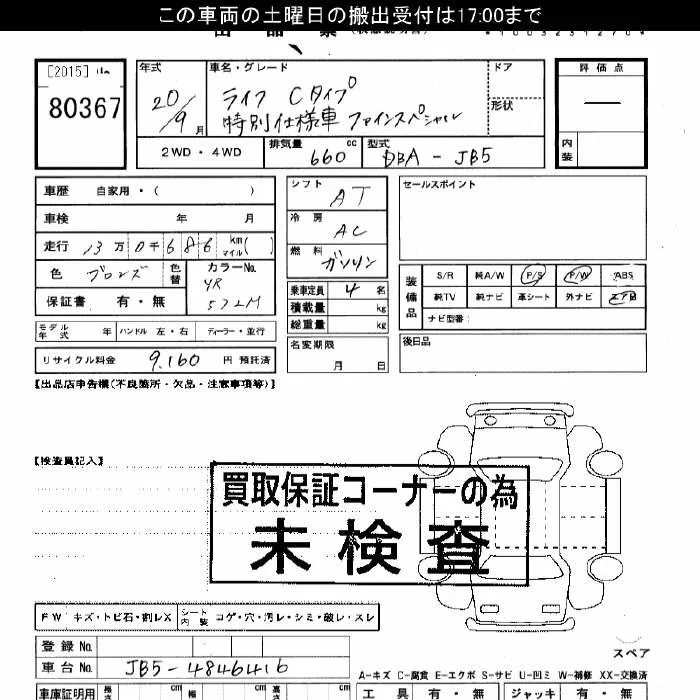 この車両の土曜日の搬出受付は17:00まで
[2015]
80367
年式 車名・グレード ドア 評価点
20/9月 ライフ Cタイプ
特別仕様車 ファインスペシャル 形状
2WD・4WD 排気量 660 cc 型式 DBA-JB5 内装
車歴 自家用・( )
シフト AT
セールスポイント
車検 年 月
冷房 AC
走行 13万0千686 km マイル( )
燃料 ガソリン
色 ブロンズ 色替 カラーNo. YR572M
保証書 有・無
乗車定員 4 名
積載量 kg
総重量 kg
装備品 S/R 純A/W P/S P/W ABS
純TV 純ナビ 革シート 外ナビ エアB
ナビ型番:
モデル年式 年 ハンドル 左・右 ディーラー・並行
名変期限 月 日
後日品
リサイクル料金 9,160 円 預託済
【出品店申告欄(不良箇所・欠品・注意事項等)】
【検査員記入】
買取保証コーナーの為
未検査
FW キズ・トビ石・割レX シート内装 コゲ・穴・汚レ・シミ・破レ・スレ
登録No.
車台No. JB5-4846416
スペア
A-キズ C-腐食 E-エクボ S-サビ U-凹ミ W-補修 XX-交換済
車庫証明用 長さ cm 幅 cm 高さ cm 工具 有・無 ジャッキ 有・無